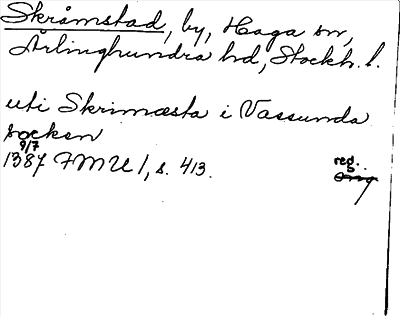 Skråmstad, by, Haga sn,
Ärlinghundra hd, Stockh. l.
uti Skrimæsta i Vassunda
socken
9/7
1387 FMU 1, s. 413.
reg.
orig